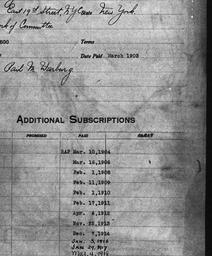 East 19th Street, N.Y.C. State New York.
of Committee
Terms
Date Paid March 1903
Paul M. Warburg
ADDITIONAL SUBSCRIPTIONS
PROMISED PAID
RAP Mar. 10, 1904
Mar. 16, 1906
Feb. 1, 1908
Feb. 11, 1909
Feb. 1, 1910
Feb. 17, 1911
Apr. 8, 1912
Nov. 22, 1913
Dec. 7, 1914
JAN. 3, 1916
JAN 29, 1917